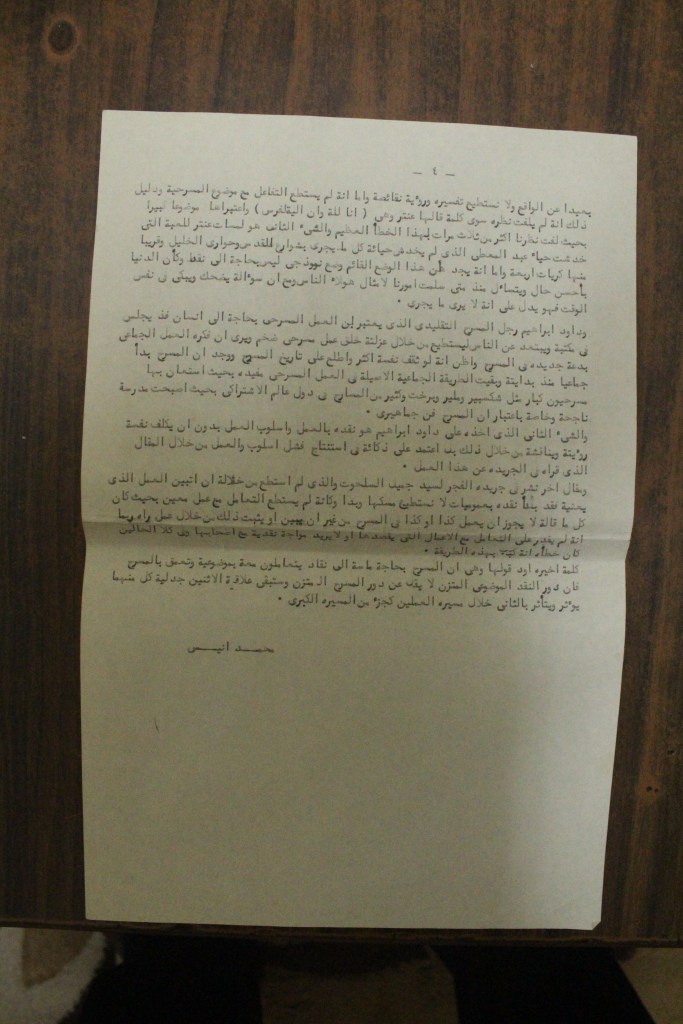 — ٤ —
بعيدا عن الواقع ولا نستطيع تفسيره ورؤية نقائصة واما انة لم يستطع التفاعل مع موضوع المسرحية ودليل
ذلك انة لم يلفت نظره سوى كلمة قالها عنتر وهي ( انا للة وان اليةلفرس ) واعتبراها موضوعا كبيرا
بحيث لفت نظرنا اكثر من ثلاث مرات لهذا الخطأ العظيم والشيء الثانى هو لمسات عنتر للحية التى
خدشت حياء عبد المعطى الذى لم يخدش حياتة كل ما يجرى بشوارع القدس وحوارى الخليل وقريبا
منها كريات اربعة واما انة يجد ان هذا الوضع القائم وضع نموذجى ليس بحاجة الى نقط وكأن الدنيا
بأحسن حال ويتسائل منذ متى سلمت امورنا لامثال هولاء الناس ومع ان سوالة يضحك ويبكى فى نفس
الوقت فهو يدل على انة لا يرى ما يجرى ٠
وداود ابراهيم رجل المسرح التقليدى الذى يعتبر ان العمل المسرحى بحاجة الى انسان فذ يجلس
فى مكتبة ويبتعد عن الناس ليستطيع من خلال عزلتة خلق عمل مسرحى ضخم ويرى ان فكره العمل الجماعى
بدعة جديده فى المسرح واظن انة لو ثقف نفسة اكثر واطلع على تاريخ المسرح ووجد ان المسرح بدأ
جماعيا منذ بدايتة وبقيت الطريقة الجماعية الاصيلة فى العمل المسرحى مفيده بحيث استعان بها
مسرحيون كبار مثل شكسبير وملير وبرخت وكثير من المسارح فى دول عالم الاشتراكى بحيث اصبحت مدرسة
ناجحة وخاصة باعتبار ان المسرح فن جماهيرى ٠
والشيء الثانى الذى اخذه على داود ابراهيم هو نقده بالعمل واسلوب العمل بدون ان يكلف نفسة
رؤيتة ويناقشة من خلال ذلك بل اعتمد على ذكائة فى استنتاج فشل اسلوب والعمل من خلال المقال
الذى قراء فى الجريده عن هذا العمل ٠
ومقال اخر نشر فى جريده الفجر لسيد جميد السلحوت والذى لم استطع من خلالة ان اتبين العمل الذى
يعنية فقد بدأ نقده بعموميات لا نستطيع مسكها وبدا وكانة لم يستطع التعامل مع عمل معين بحيث كان
كل ما قالة لا يجوز ان يعمل كذا او كذا فى المسرح من غير ان يبين او يثبت ذلك من خلال عمل راه وبما
انة لم يقدر على التعامل مع الاعمال التى يقصدها او لا يريد مواجة نقدية مع اصحابها وفى كلا الحالتين
كان خطأه انة بهذه الطريقة ٠
كلمة اخيره اود قولها وهى ان المسرح بحاجة ماسة الى نقاد يتعاملون معة بموضوعية وتعمق بالمسرح
فان دور النقد الموضوعى المتزن لا يقل عن دور المسرح المتزن وستبقى علاقة الاثنين جدلية كل منهما
يوثر ويتأثر بالثانى خلال مسيره العملين كجزء من المسيره الكبرى ٠
محمد انيس